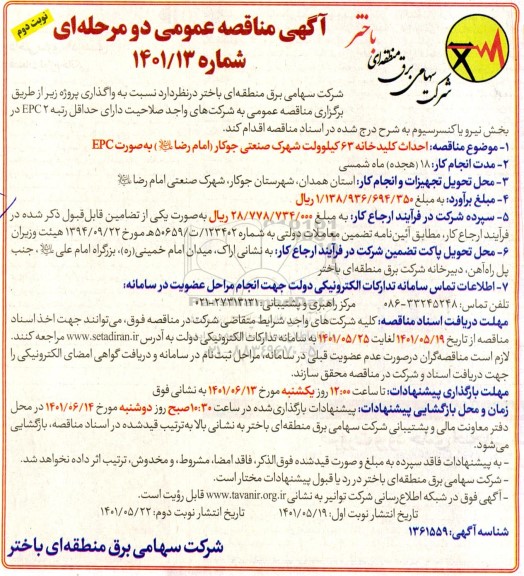 نوبت دوم
آگهی مناقصه عمومی دو مرحله‌ای
شماره ۱۴۰۱/۱۳
شرکت سهامی برق منطقه‌ای باختر
شرکت سهامی برق منطقه‌ای باختر درنظردارد نسبت به واگذاری پروژه زیر از طریق
برگزاری مناقصه عمومی به شرکت‌های واجد صلاحیت دارای حداقل رتبه ۲ EPC در
بخش نیرو یا کنسرسیوم به شرح درج شده در اسناد مناقصه اقدام کند.
۱- موضوع مناقصه: احداث کلیدخانه ۶۳ کیلوولت شهرک صنعتی جوکار (امام رضا) به‌صورت EPC
۲- مدت انجام کار: ۱۸ (هجده) ماه شمسی
۳- محل تحویل تجهیزات و انجام کار: استان همدان، شهرستان جوکار، شهرک صنعتی امام رضا
۴- مبلغ برآورد: به مبلغ ۱/۱۳۸/۹۳۶/۶۹۴/۳۵۰ ریال
۵- سپرده شرکت در فرآیند ارجاع کار: به مبلغ ۲۸/۷۷۸/۷۳۴/۰۰۰ ریال به‌صورت یکی از تضامین قابل‌قبول ذکر شده در
فرآیند ارجاع کار، مطابق آئین‌نامه تضمین معاملات دولتی به شماره ۱۲۳۴۰۲/ت۵۰۶۵۹هـ مورخ ۱۳۹۴/۰۹/۲۲ هیئت وزیران
۶- محل تحویل پاکت تضمین شرکت در فرآیند ارجاع کار: به نشانی اراک، میدان امام خمینی(ره)، بزرگراه امام علی، جنب
پل راه‌آهن، دبیرخانه شرکت برق منطقه‌ای باختر
۷- اطلاعات تماس سامانه تدارکات الکترونیکی دولت جهت انجام مراحل عضویت در سامانه:
تلفن تماس: ۳۳۲۴۵۲۴۸-۰۸۶ مرکز راهبری و پشتیبانی: ۲۷۳۱۳۱۳۱-۰۲۱
مهلت دریافت اسناد مناقصه: کلیه شرکت‌های واجد شرایط متقاضی شرکت در مناقصه فوق، می‌توانند جهت اخذ اسناد
مناقصه از تاریخ ۱۴۰۱/۰۵/۱۹ لغایت ۱۴۰۱/۰۵/۲۵ به سامانه تدارکات الکترونیکی دولت به آدرس www.setadiran.ir مراجعه کنند.
لازم است مناقصه‌گران درصورت عدم عضویت قبلی در سامانه، مراحل ثبت‌نام در سامانه و دریافت گواهی امضای الکترونیکی را
جهت دریافت اسناد و شرکت در مناقصه محقق سازند.
مهلت بازگذاری پیشنهادات: تا ساعت ۱۲:۰۰ روز یکشنبه مورخ ۱۴۰۱/۰۶/۱۳ به نشانی فوق
زمان و محل بازگشایی پیشنهادات: پیشنهادات بازگذاری‌شده در ساعت ۱۰:۳۰ صبح روز دوشنبه مورخ ۱۴۰۱/۰۶/۱۴ در محل
دفتر معاونت مالی و پشتیبانی شرکت سهامی برق منطقه‌ای باختر به نشانی بالا به‌ترتیب قیدشده در اسناد مناقصه، بازگشایی
می‌شود.
- به پیشنهادات فاقد سپرده به مبلغ و صورت قیدشده فوق‌الذکر، فاقد امضا، مشروط، و مخدوش، ترتیب اثر داده نخواهد شد.
- شرکت سهامی برق منطقه‌ای باختر در رد یا قبول پیشنهادات مختار است.
- آگهی فوق در شبکه اطلاع‌رسانی شرکت توانیر به نشانی www.tavanir.org.ir قابل رؤیت است.
تاریخ انتشار نوبت اول: ۱۴۰۱/۰۵/۱۹ تاریخ انتشار نوبت دوم: ۱۴۰۱/۰۵/۲۲
شناسه آگهی: ۱۳۶۱۵۵۹
شرکت سهامی برق منطقه‌ای باختر